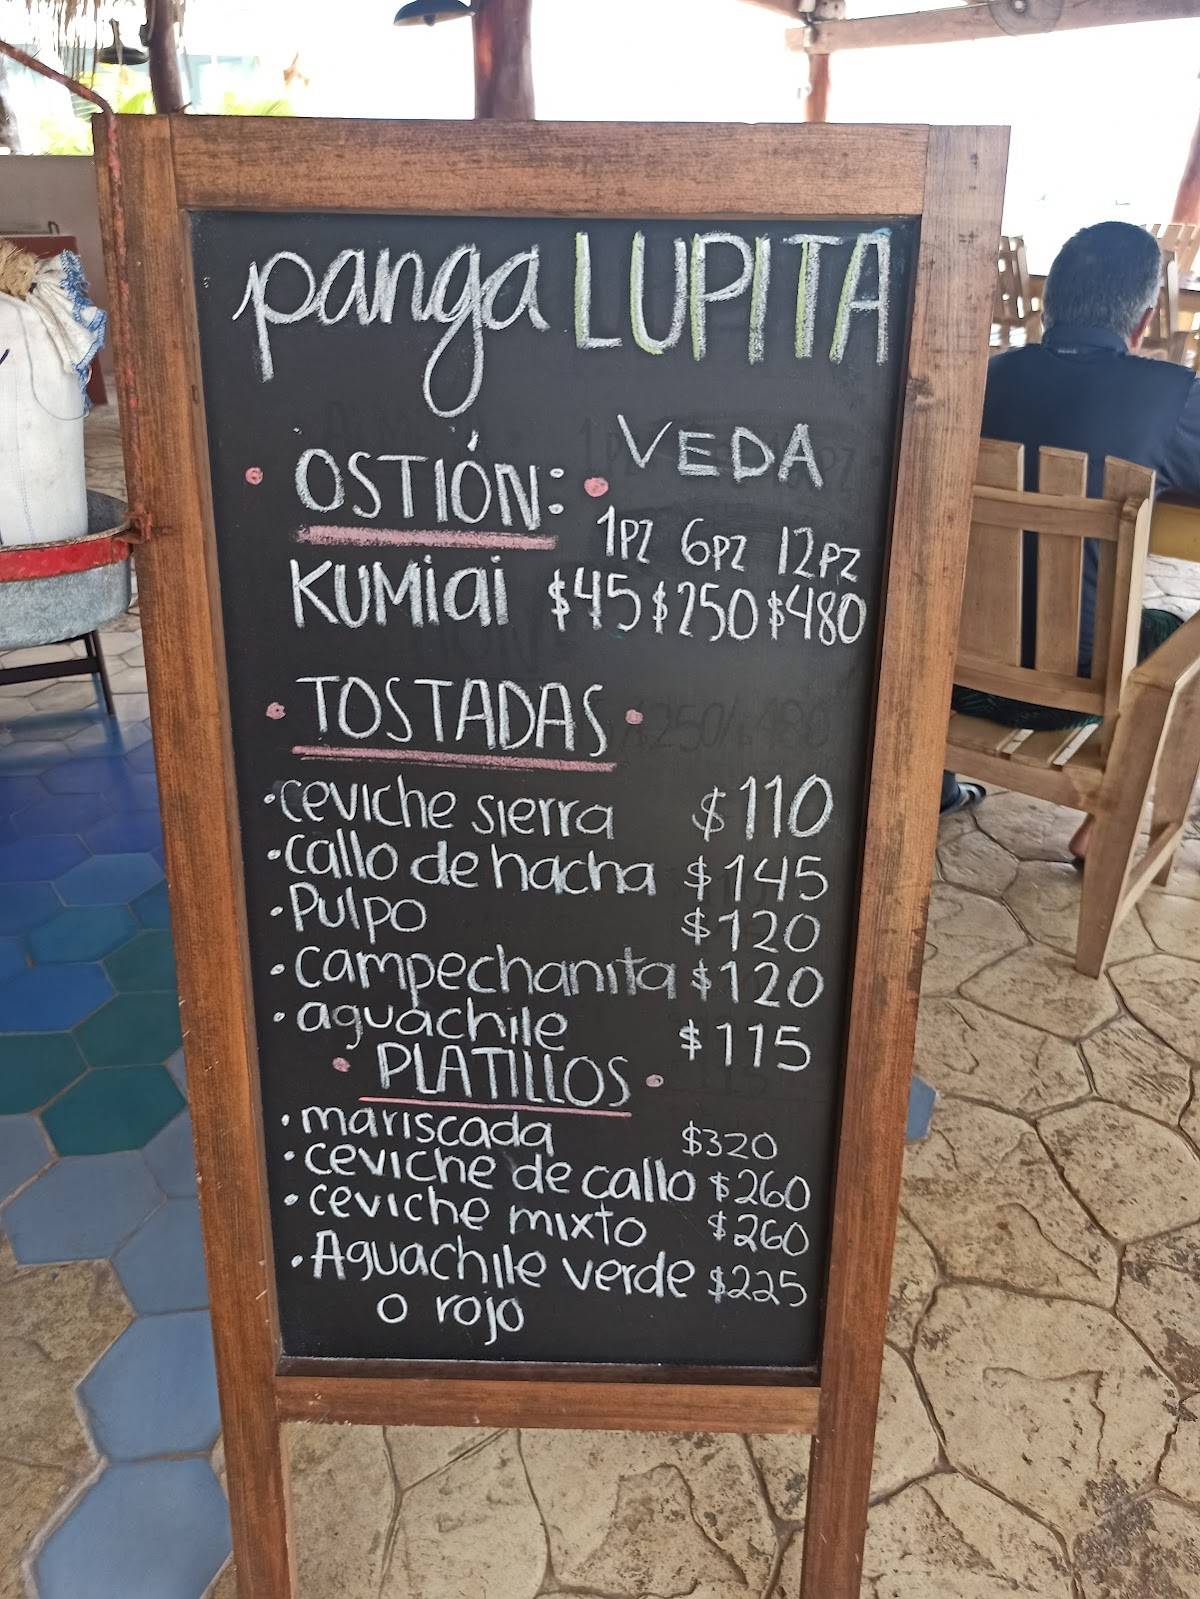 panga LUPITA
• OSTIÓN: • VEDA
1PZ 6PZ 12PZ
KUMIAI $45 $250 $480
• TOSTADAS •
• ceviche sierra $110
• callo de hacha $145
• Pulpo $120
• campechanita $120
• aguachile $115
• PLATILLOS •
• mariscada $320
• ceviche de callo $260
• ceviche mixto $260
• Aguachile verde $225
o rojo